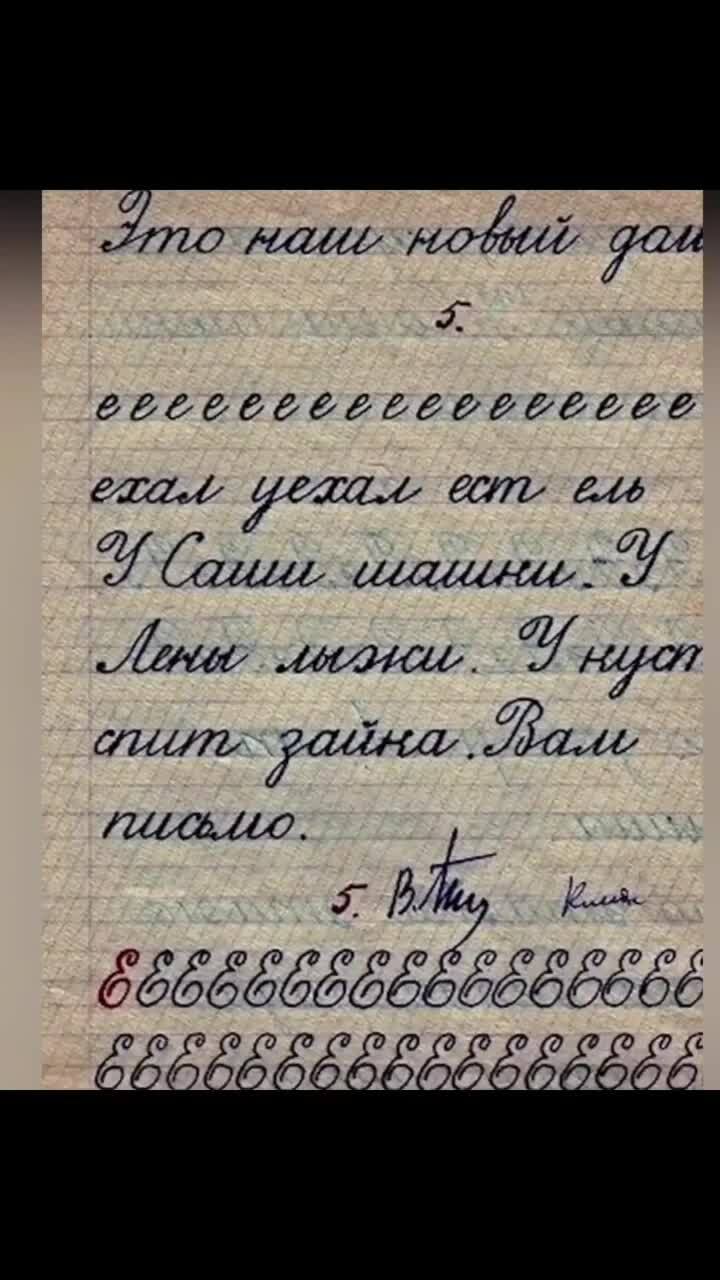 Это наш новый дом
5.
е е е е е е е е е е е е е е е е е
ехал уехал ест ель
У Саши шашки. У
Лены лыжи. У куст
спит зайка. Вам
письмо.
5.
Е Е Е Е Е Е Е Е Е Е Е Е Е Е Е Е Е
Е Е Е Е Е Е Е Е Е Е Е Е Е Е Е Е Е